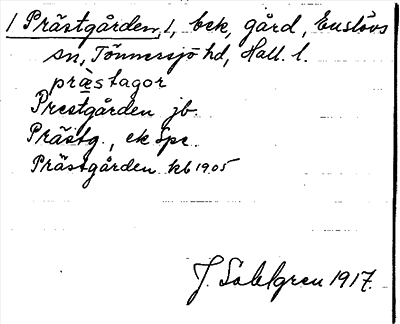 1 Prästgården, 1, bek, gård, Enslövs
sn, Tönnersjö hd, Hall. l.
præ̀stagor
Prestgården jb.
Prästg., ek Spec.
Prästgården kb 1905
J. Sahlgren 1917.